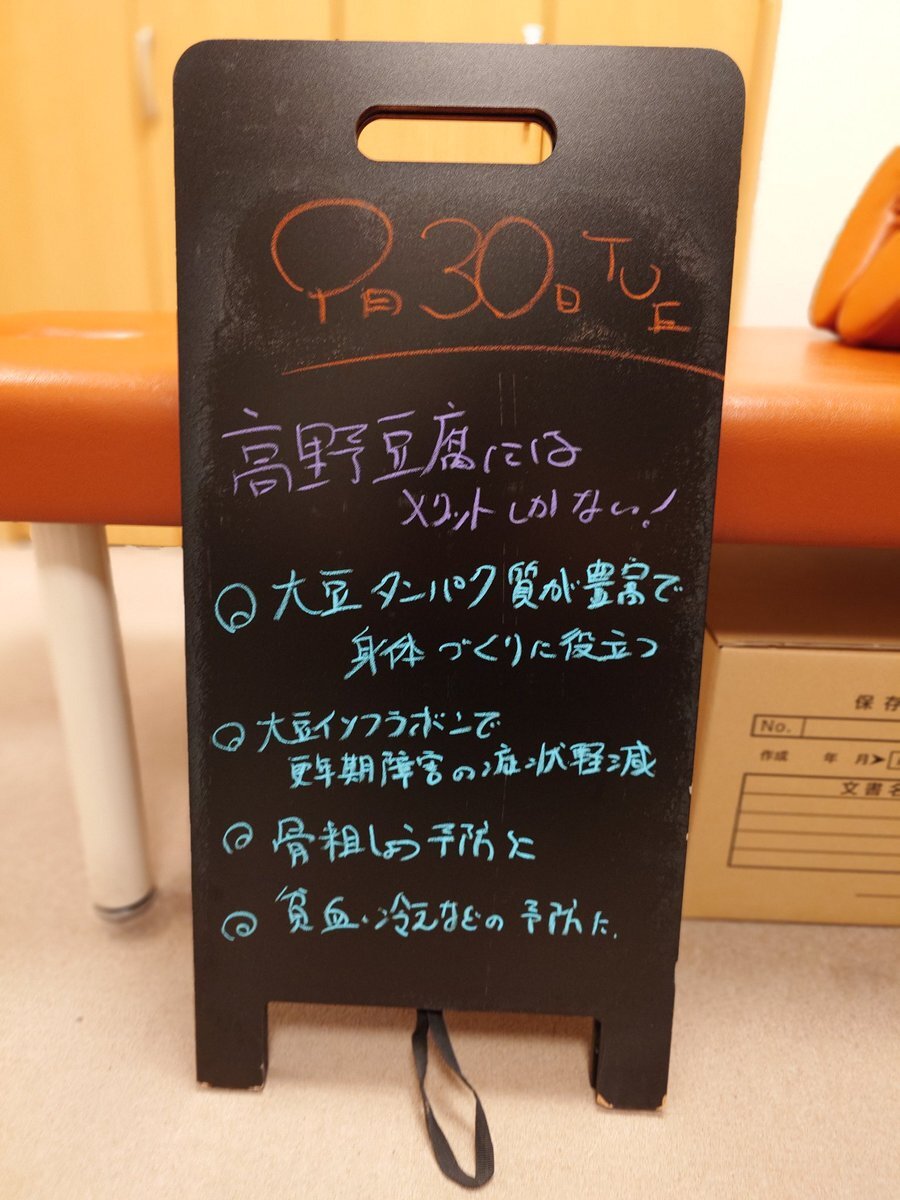 9月30日 TUE
高野豆腐には
メリットしかない!
大豆タンパク質が豊富で
身体づくりに役立つ
大豆イソフラボンで
更年期障害の症状軽減
骨粗しょう予防に
貧血・冷えなどの予防に.
保存
No.
作成 年 月
文書名